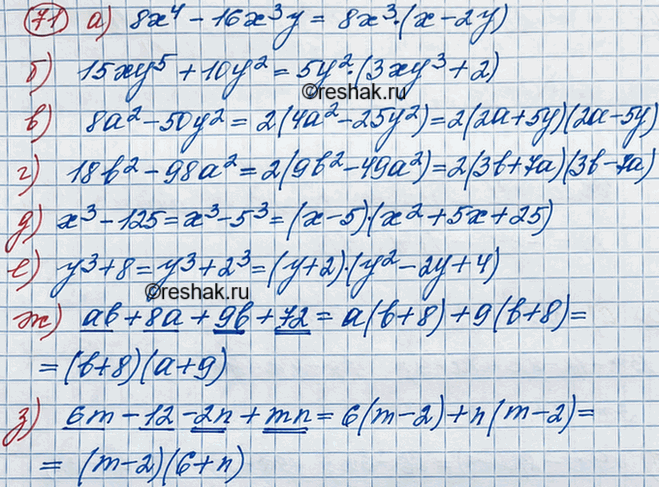 71 а) 8x⁴ - 16x³y = 8x³·(x - 2y)
б) 15xy⁵ + 10y² = 5y²·(3xy³ + 2)
©reshak.ru
в) 8a² - 50y² = 2(4a² - 25y²) = 2(2a + 5y)(2a - 5y)
г) 18b² - 98a² = 2(9b² - 49a²) = 2(3b + 7a)(3b - 7a)
д) x³ - 125 = x³ - 5³ = (x - 5)·(x² + 5x + 25)
е) y³ + 8 = y³ + 2³ = (y + 2)·(y² - 2y + 4)
©reshak.ru
ж) ab + 8a + 9b + 72 = a(b + 8) + 9(b + 8) =
= (b + 8)(a + 9)
з) 6m - 12 - 2n + mn = 6(m - 2) + n(m - 2) =
= (m - 2)(6 + n)